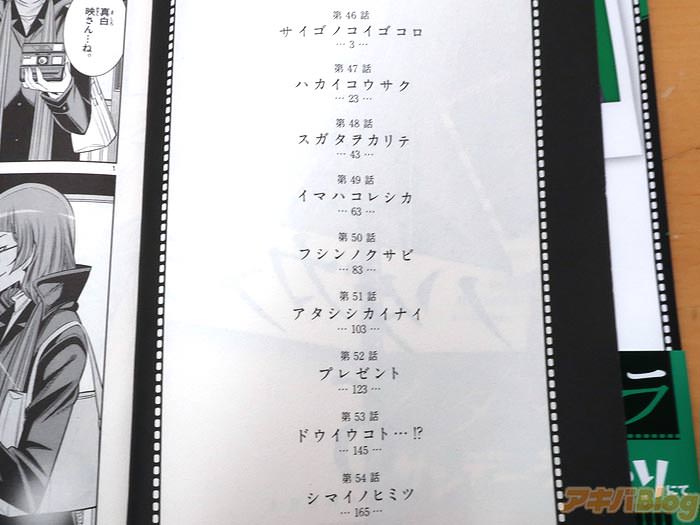 第46話
サイゴノコイゴコロ
… 3 …
第47話
ハカイコウサク
… 23 …
第48話
スガタヲカリテ
… 43 …
第49話
イマハコレシカ
… 63 …
第50話
フシンノクサビ
… 83 …
第51話
アタシシカイナイ
… 103 …
第52話
プレゼント
… 123 …
第53話
ドウイウコト…!?
… 145 …
第54話
シマイノヒミツ
… 165 …
真白
映さん…ね。
1
ラ
にて
アキバBlog